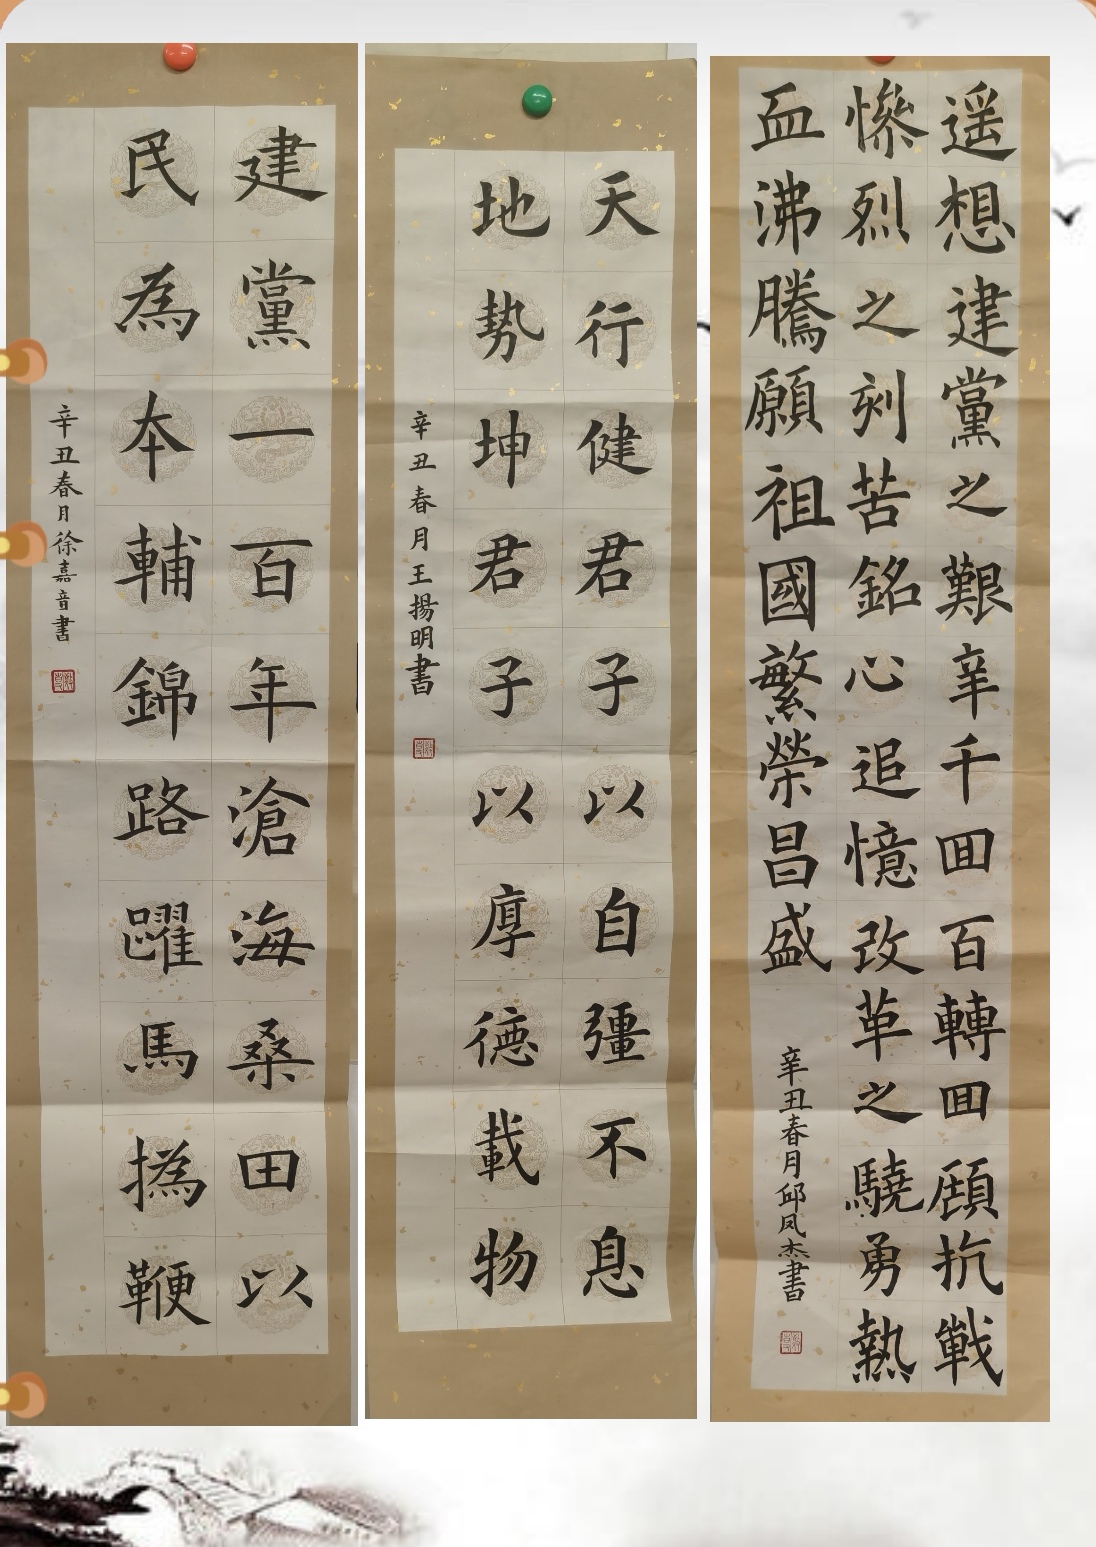 建黨一百年滄海桑田以
民為本輔錦路躍馬撝鞭
辛丑春月徐嘉音書
天行健君子以自彊不息
地势坤君子以厚德載物
辛丑春月王揚明書
遥想建黨之艱辛千囬百轉囬顧抗戰
慘烈之刻苦銘心追憶改革之驍勇熱
血沸騰願祖國繁榮昌盛
辛丑春月邱凤杰書